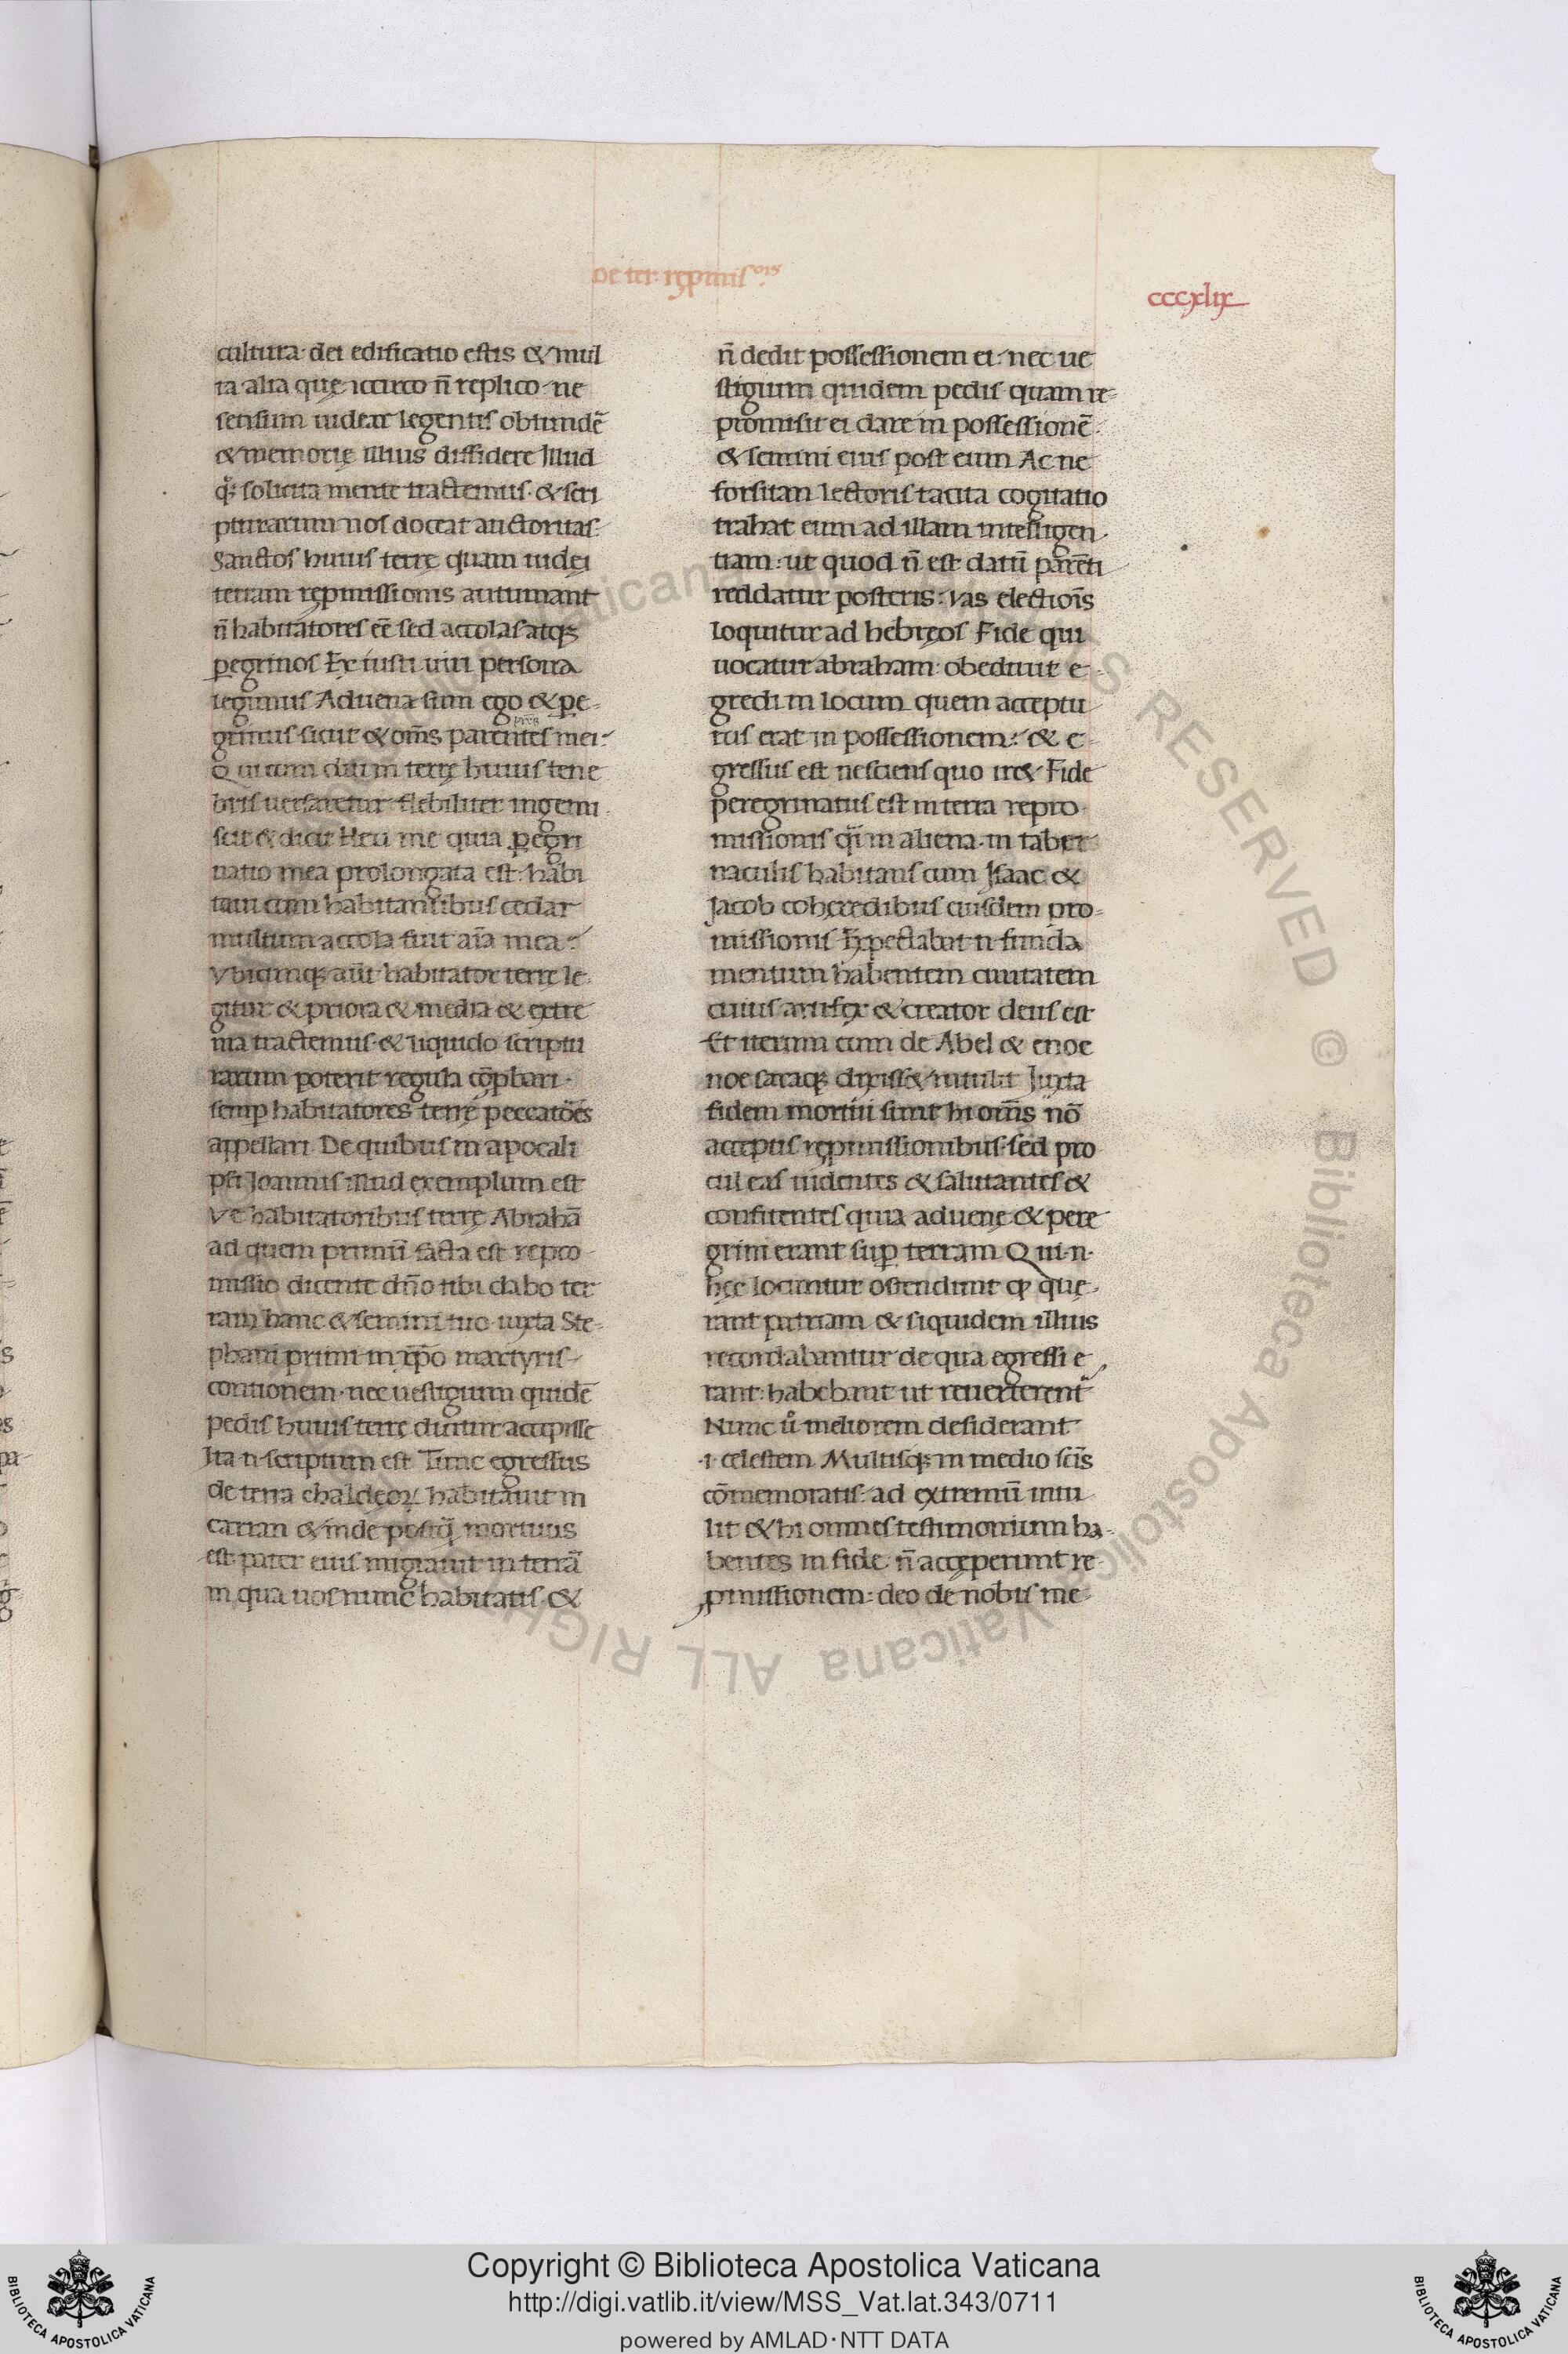 De ter. rępmis.ois
cccxlix
cultura· dei edificatio estis & mul
ta alia quę iccirco n̄ replico· ne
sensum uidear legentis obtundẽ
& memorię illius diffidere Illud
q̃ꝫ solicita mente tractemus· & scri
pturarum nos doceat auctoritas·
Sanctos huius terrę quam iudei
terram rępmissionis autumant
n̄ habitatores eē sed accolas atqꝫ
peregrinos Ex iusti uiri persona
legimus Aduena sum ego & pe-
prēs
grinus sicut & om̄s parentes mei:
Qui cum diu in terrę huius tene
bris uersaretur flebiliter ingemi
scit & dicit Heu me quia ꝑegri
natio mea prolongata est: habi
taui cum habitantibus cedar
multum accola fuit aīa mea:
Vbicunqꝫ aūt habitator terrę le-
gitur & priora & media & extre
ma tractemus· & liquido scriptu
rarum poterit regula cōpbari·
semꝑ habitatores terrę peccatōes
appellari De quibus in apocali
psi Joannis istud exemplum est
Ve habitatoribus terrę Abrahā
ad quem primū facta est repro
missio dicente dn̄o tibi dabo ter
ram hanc & semini tuo iuxta Ste-
phani primi in xp̄o martyris
contionem· nec uestigium quidē
pedis huius terrę dicitur accepisse
Ita n· scriptum est Tunc egressus
de terra chaldęoꝝ habitauit in
carran & inde postq̄ mortuus
est pater eius migrauit in terrā
in qua uos nunc habitatis· &
n̄ dedit possessionem ei· nec ue
stigium quidem pedis· quam re-
promisit ei dare in possessionē·
& semini eius post eum Ac ne
forsitan lectoris tacita cogitatio
trahat eum ad illam intelligen
tiam: ut quod n̄ est datū parēti
reddatur posteris: Vas electiōis
loquitur ad hebręos Fide qui
uocatur abraham: obediuit e-
gredi in locum quem acceptu
rus erat in possessionem: & e-
gressus est nesciens quo iret Fide
peregrinatus est in terra repro-
missionis q̄i in aliena· in taber
naculis habitans cum Isaac &
Jacob cohęredibus eiusdem pro-
missionis Expectabat n· funda
mentum habentem ciuitatem
cuius artifex & creator deus est
Et iterum cum de Abel & enoc
noe saraqꝫ dixiss& intulit Juxta
fidem mortui sunt hi om̄s nō
acceptis rępmissionibus· sed pro
cul eas uidentes & salutantes &
confitentes quia aduenę & pere
grini erant suꝑ terram Qui·n·
hęc locuntur ostendunt ꝙ quę-
rant patriam & siquidem illius
recordabantur de qua egressi e
rant: habebant ut reuerterent̃
Nunc ů meliorem desiderant
·i· celestem Multisqꝫ in medio scīs
cōmemoratis: ad extremū intu
lit & hi omnes testimonium ha-
bentes in fide n̄ accęperunt re-
pmissionem: deo de nobis me-
Copyright © Biblioteca Apostolica Vaticana
http://digi.vatlib.it/view/MSS_Vat.lat.343/0711
powered by AMLAD·NTT DATA
BIBLIOTECA APOSTOLICA VATICANA
BIBLIOTECA APOSTOLICA VATICANA